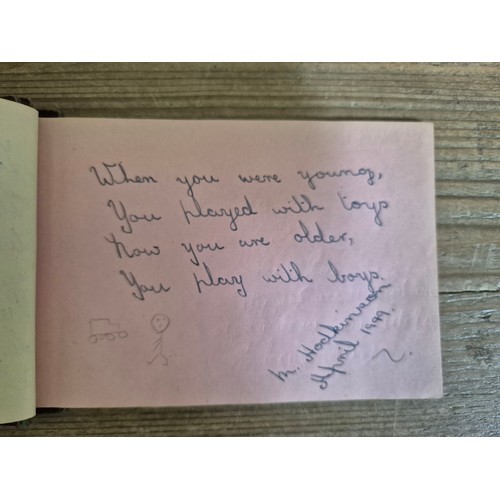 When you were young,
You played with toys
Now you are older,
You play with boys.
M. Hodkinson
April 1949.